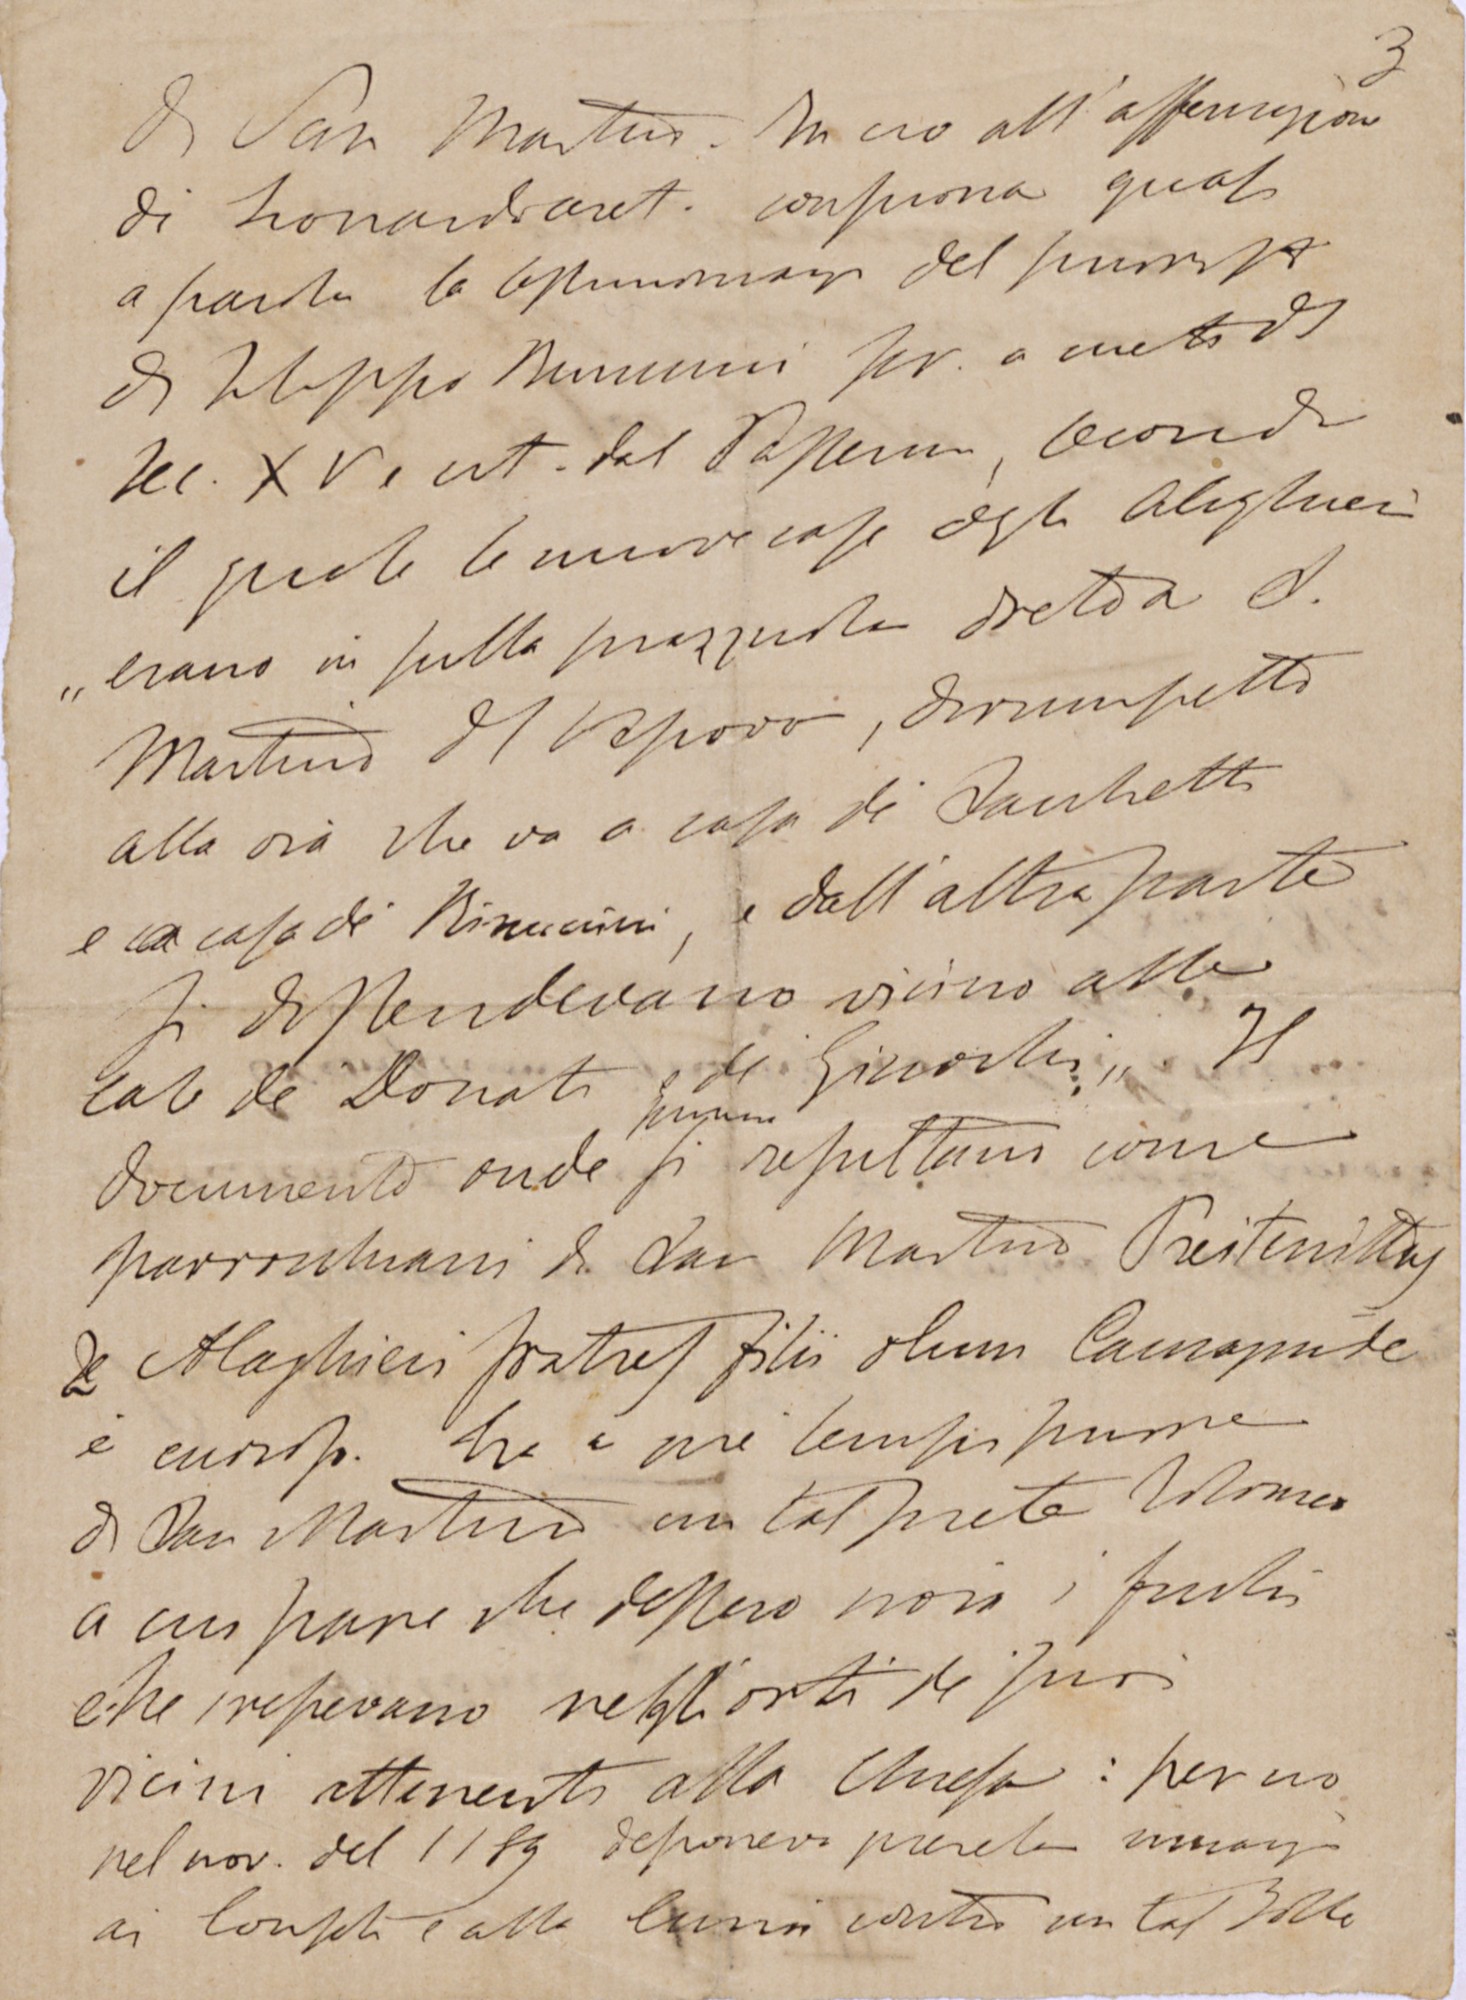 3
di San Martino. In ciò all'affermazione
di Leonardo aret. consuona quasi
a parola la testimonianza del
di Filippo Rinuccini scr. a metà del
sec. XV e cit. dal Passerini, secondo
il quale le nuove case degli Alighieri
„ erano in sulla piazzuola dreto a S.
Martino del Vescovo, dirimpetto
alla via che va a casa di Sacchetti
e a casa di Rinuccini, e dall'altra parte
si distendevano vicino alle
case de Donati e de Giuochi „ Il
documento onde prima si resultano come
parrocchiani di San Martino Preitenittus
de Alaghieri fratres filii olim Cacciaguide
è curioso. Era a que' tempi priore
di San Martino un tal prete Tolomeo
a cui pare che dessero noia i fichi
che crescevano negli orti de suoi
vicini attenenti alla Chiesa: per ciò
nel nov. del 1189 deponeva querela innanzi
ai Consoli e alla Curia contro un tal